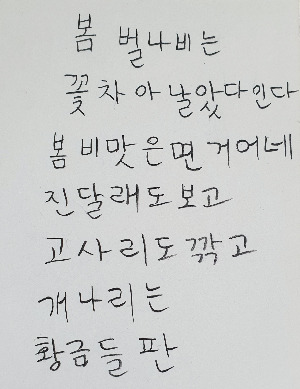 봄 벌나비는
꽃차아날았다인다
봄비맞은면거어네
진달래도보고
고사리도깎고
개나리는
황금들판